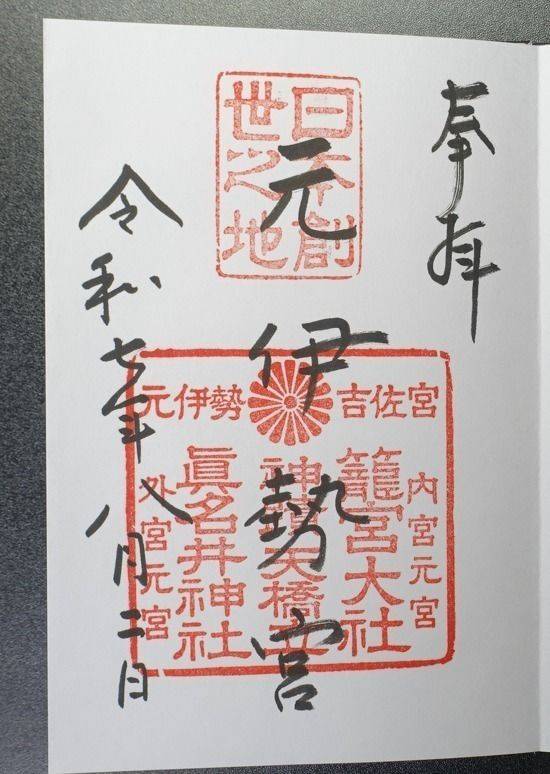 奉拝
日本創
世之地
元伊勢宮
吉佐宮
元伊勢
内宮元宮
籠宮大社
神蹟天橋立
眞名井神社
外宮元宮
令和七年八月二日